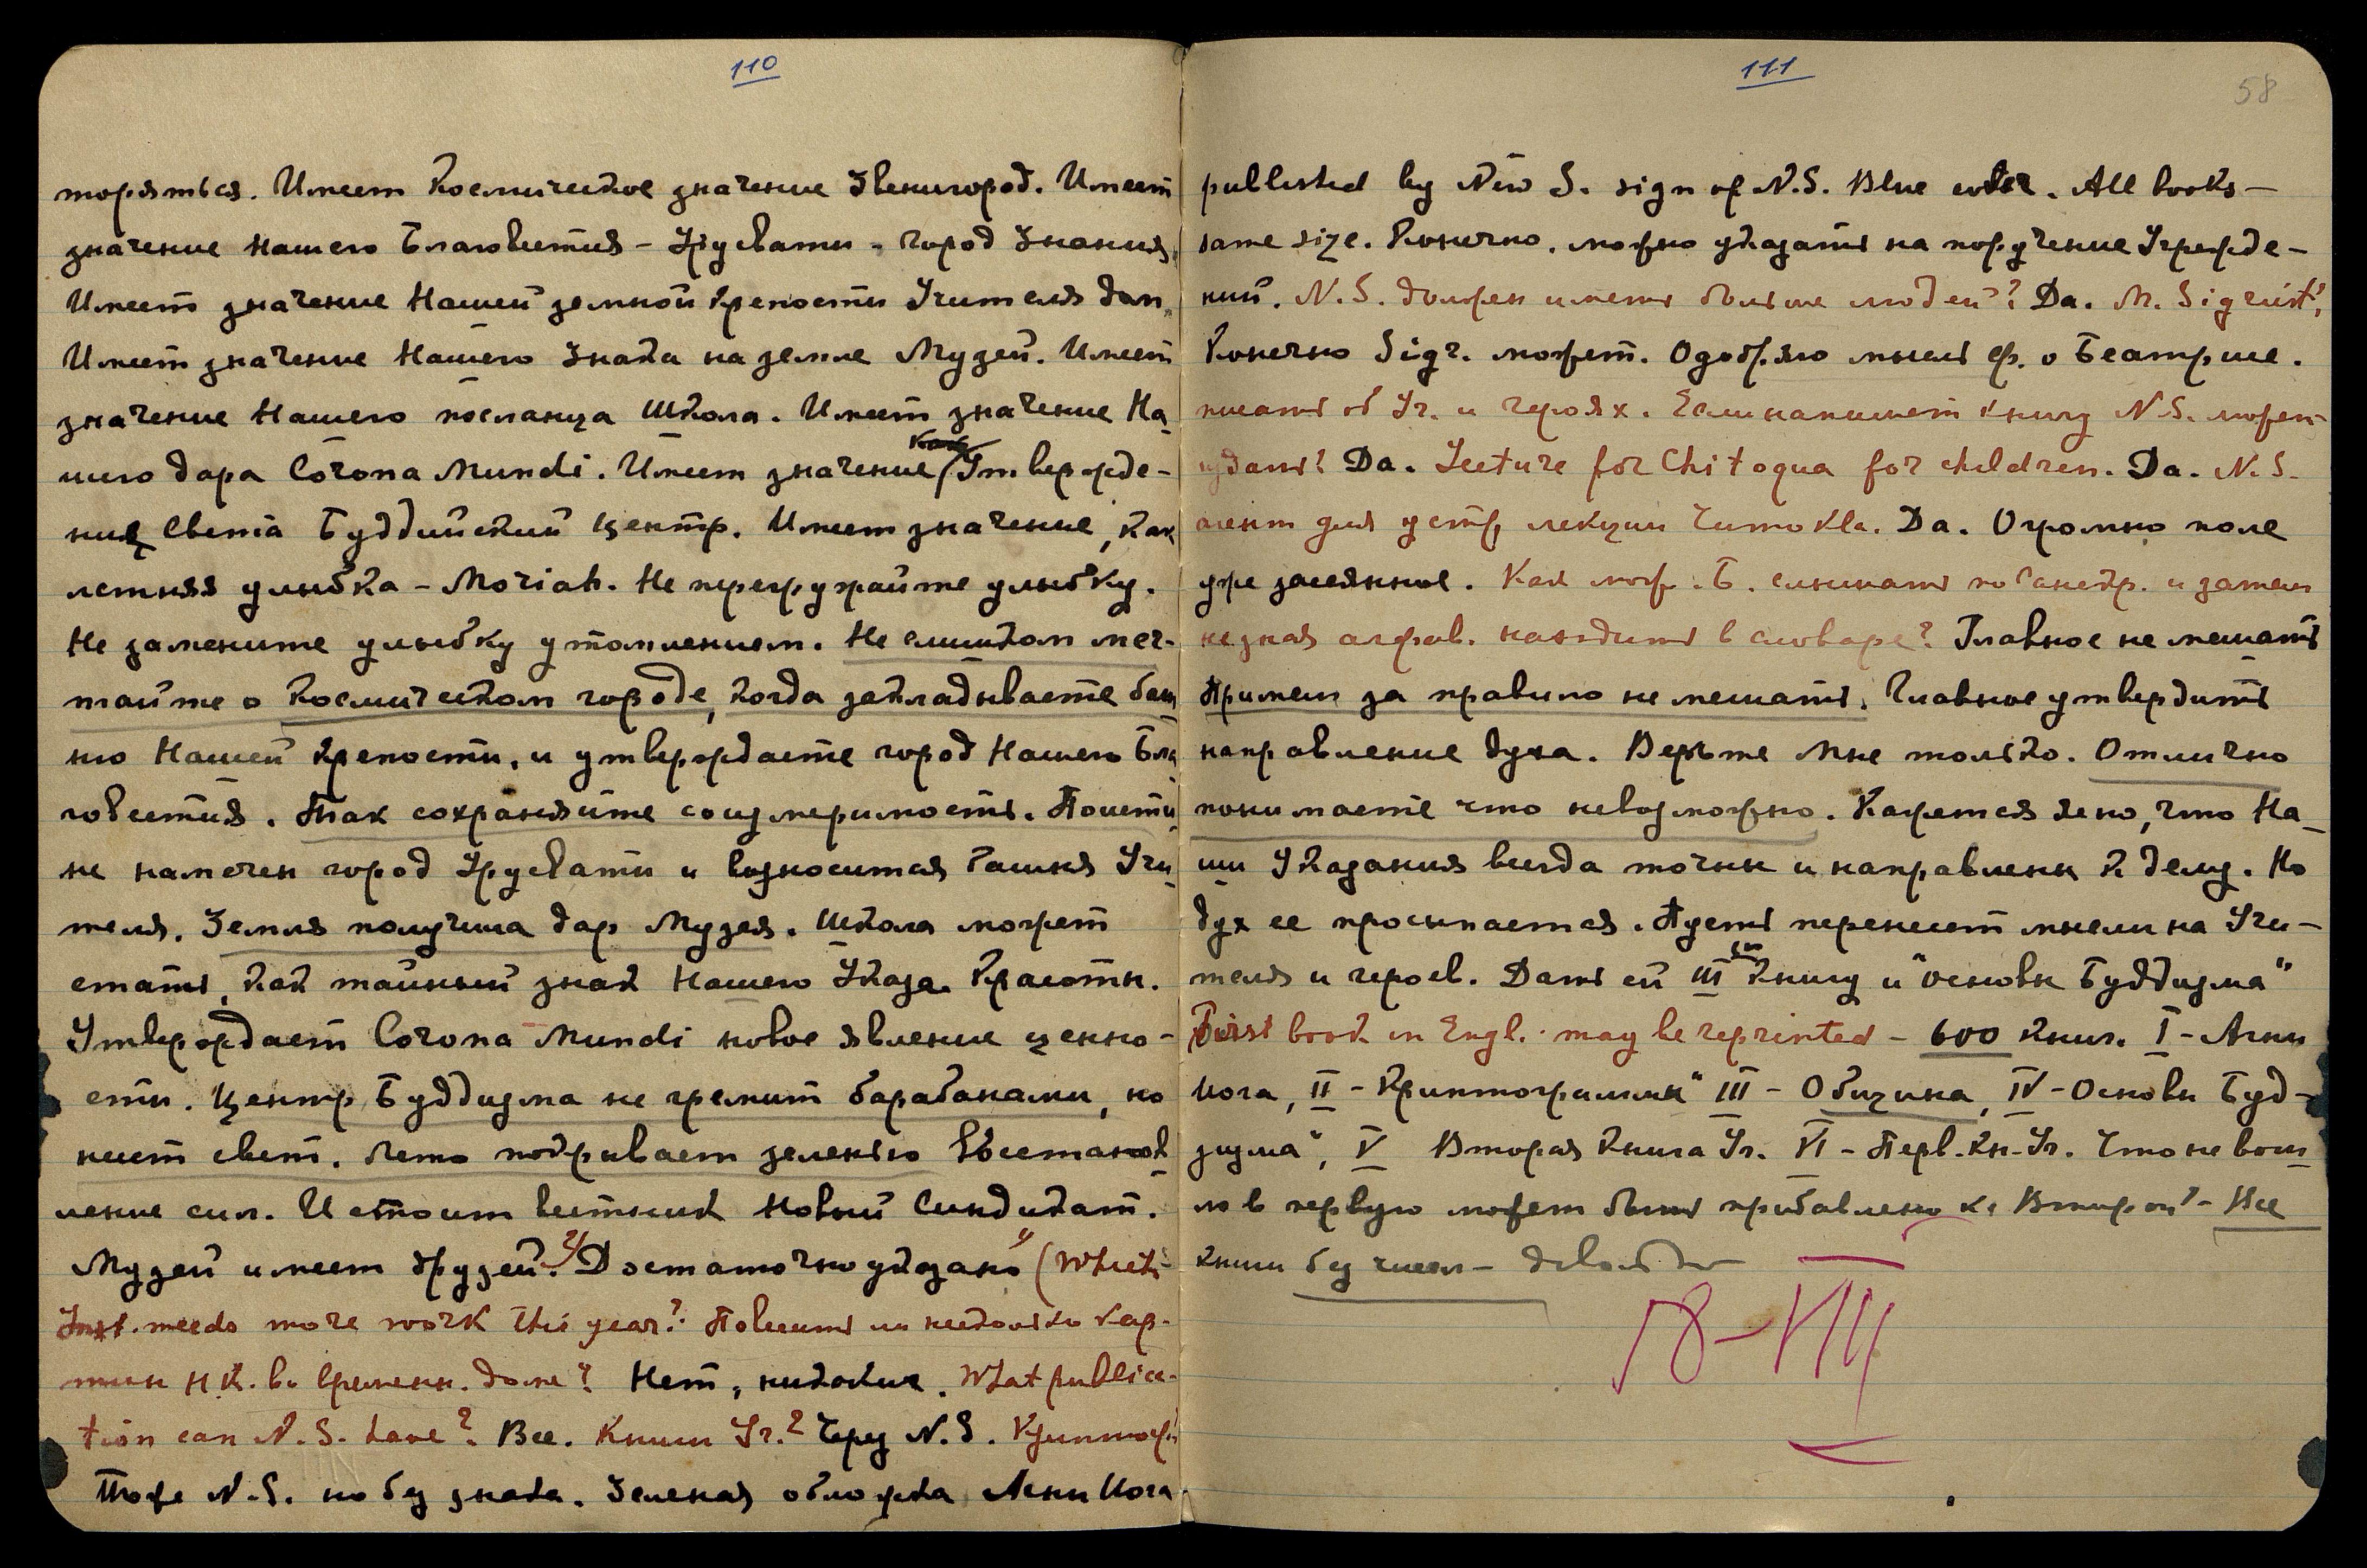 110
торяться. Имеет Космическое значение Звенигород. Имеет
значение Нашего Благовестия – Урусвати – город Знания.
Имеет значение Нашей земной крепости Учителя дом.
Имеет значение Нашего Знака на земле Музей. Имеет
значение Нашего посланца Школа. Имеет значение На-
шего дара Corona Mundi. Имеет значение Утвержде-
ния Света Буддийский центр. Имеет значение, как
летняя улыбка – Moriah. Не перегружайте улыбку.
Не замените улыбку утомлением. Не слишком меч-
тайте о Космическом городе, когда закладываете баш
ню Нашей крепости, и утверждаете город Нашего Бла
говестия. Так сохраняйте соизмеримость. Поисти
не намечен город Урусвати и возносится Башня Учи
теля. Земля получила дар Музея. Школа может
стать, как тайный знак Нашего Указа Красоты.
Утверждает Corona Mundi новое явление ценно-
сти. Центр Буддизма не гремит барабанами, но
несет свет. Лето покрывает зеленью восстанов
ление сил. И стоит вестник Новый Синдикат.
Музей имеет друзей. Достаточно указано (Which
Inst. needs more work this year? Повесить ли несколько кар-
тин Н.К. во временн. доме? Нет, никаких. What publica-
tion can N.S. have? Все. Книги Уч.? Через N.S. Криптогр.?
Тоже N.S. но без знака. Зеленая обложка Агни Йога
111
58
published by New S. sign of N.S. Blue color. All books –
same size. Конечно, можно указать на поручение Учрежде-
ний. N.S. должен иметь больше людей? Да. M. Sigrist?
Конечно Sigr. может. Одобряю мысль Ф. о Беатрисе.
писать об Уч. и героях. Если напишет книгу N.S. может
издать? Да. Lecture for Chitoqua for children. Да. N.S.
агент для устр. лекции Читоква. Да. Огромно поле
уже засеянное. Как мож. Б. слышать по Санскр. и затем
не зная алфав. находить в словаре? Главное не мешать
Примем за правило не мешать. Главное утвердить
направление духа. Верьте Мне только. Отлично
понимаете что невозможно. Кажется ясно, что На-
ши Указания всегда точны и направлены к делу. Но
дух ее просыпается. Пусть перенесет мысли на Учи-
теля и героев. Дать ей III книгу и "Основы Буддизма"
First book in Engl. may be reprinted – 600 книг. I – Агни
Йога, II – Криптограммы" III – Община, IV – Основы Буд-
дизма", V Вторая Книга Уч. VI – Перв. Кн. Уч. Что не вош
ло в первую может быть прибавлено ко Второй? – Все
книги без чисел –